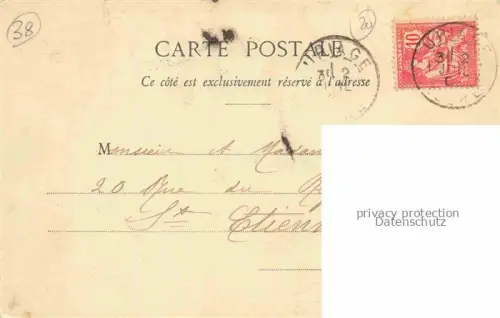 38
20
CARTE POSTALE
Ce côté est exclusivement réservé à l'adresse
URIAGE
10
Monsieur et Madame
20 Rue du
St Etienn
privacy protection
Datenschutz